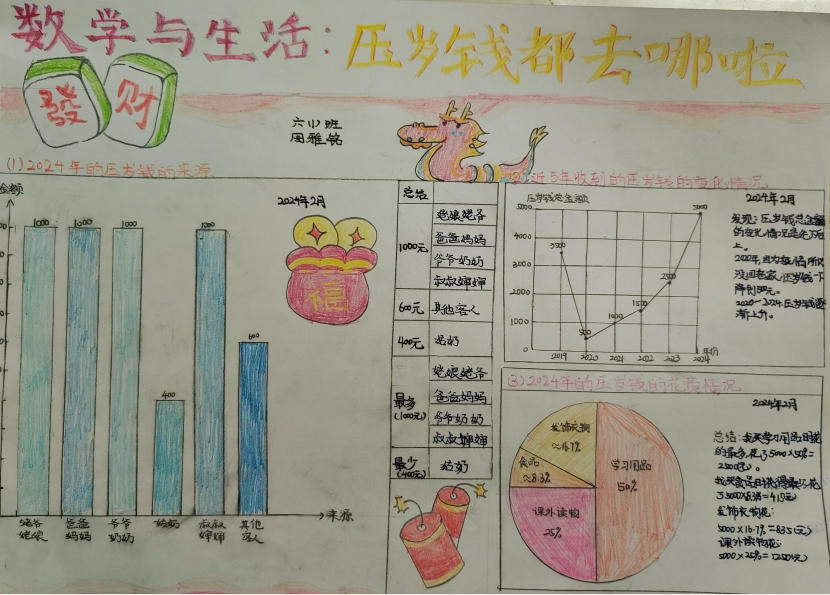 数学与生活:压岁钱都去哪啦
發 财
六(1)班
周雅铭
(1)2024年的压岁钱的来源
2024年2月
1000
1000
1000
400
1000
600
福
姥爷
姥娘
爸爸
妈妈
爷爷
奶奶
姑奶
叔叔
婶婶
其他
客人
来源
总结
1000元
姥娘姥爷
爸爸妈妈
爷爷奶奶
叔叔婶婶
600元 其他客人
400元 姑奶
最多
(1000元)
姥娘姥爷
爸爸妈妈
爷爷奶奶
叔叔婶婶
最少
(400元)
姑奶
近5年收到的压岁钱的变化情况
压岁钱总金额
2024年2月
5000
4000
3000
2000
1000
0
3500
500
1000
1500
2500
5000
2019 2020 2021 2022 2023 2024 年份
发现:压岁钱总金额
的变化情况是先下后
上。
2020年,因为疫情所以
没回老家,压岁钱一下
降到500元。
2020-2024压岁钱逐
渐上升。
(3)2024年的压岁钱的花费情况
2024年2月
发饰衣物
≈16.7%
食品
≈8.3%
学习用品
50%
课外读物
25%
总结:我买学习用品时花
的最多,花了5000×50%=
2500(元)。
我买食品时花得最少,花
了5000×8.3%=415(元)
发饰衣物花:
5000×16.7%=835(元)
课外读物花:
5000×25%=1250(元)